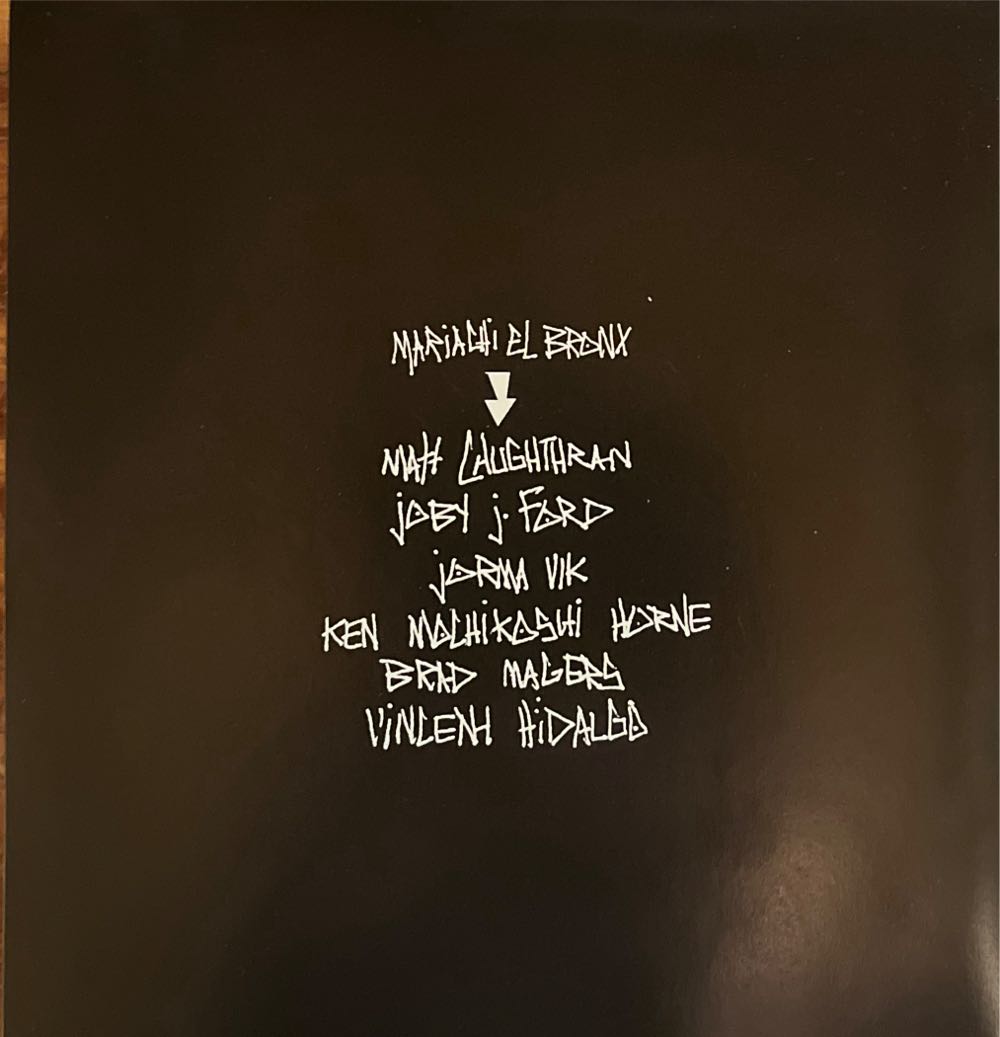 MARiACHi EL BRONX
MATT CAUGHTHRAN
jOBY j. FORD
jORMA ViK
KEN MOCHiKOSHi HORNE
BRAD MAGERS
ViNCENT HiDALGO